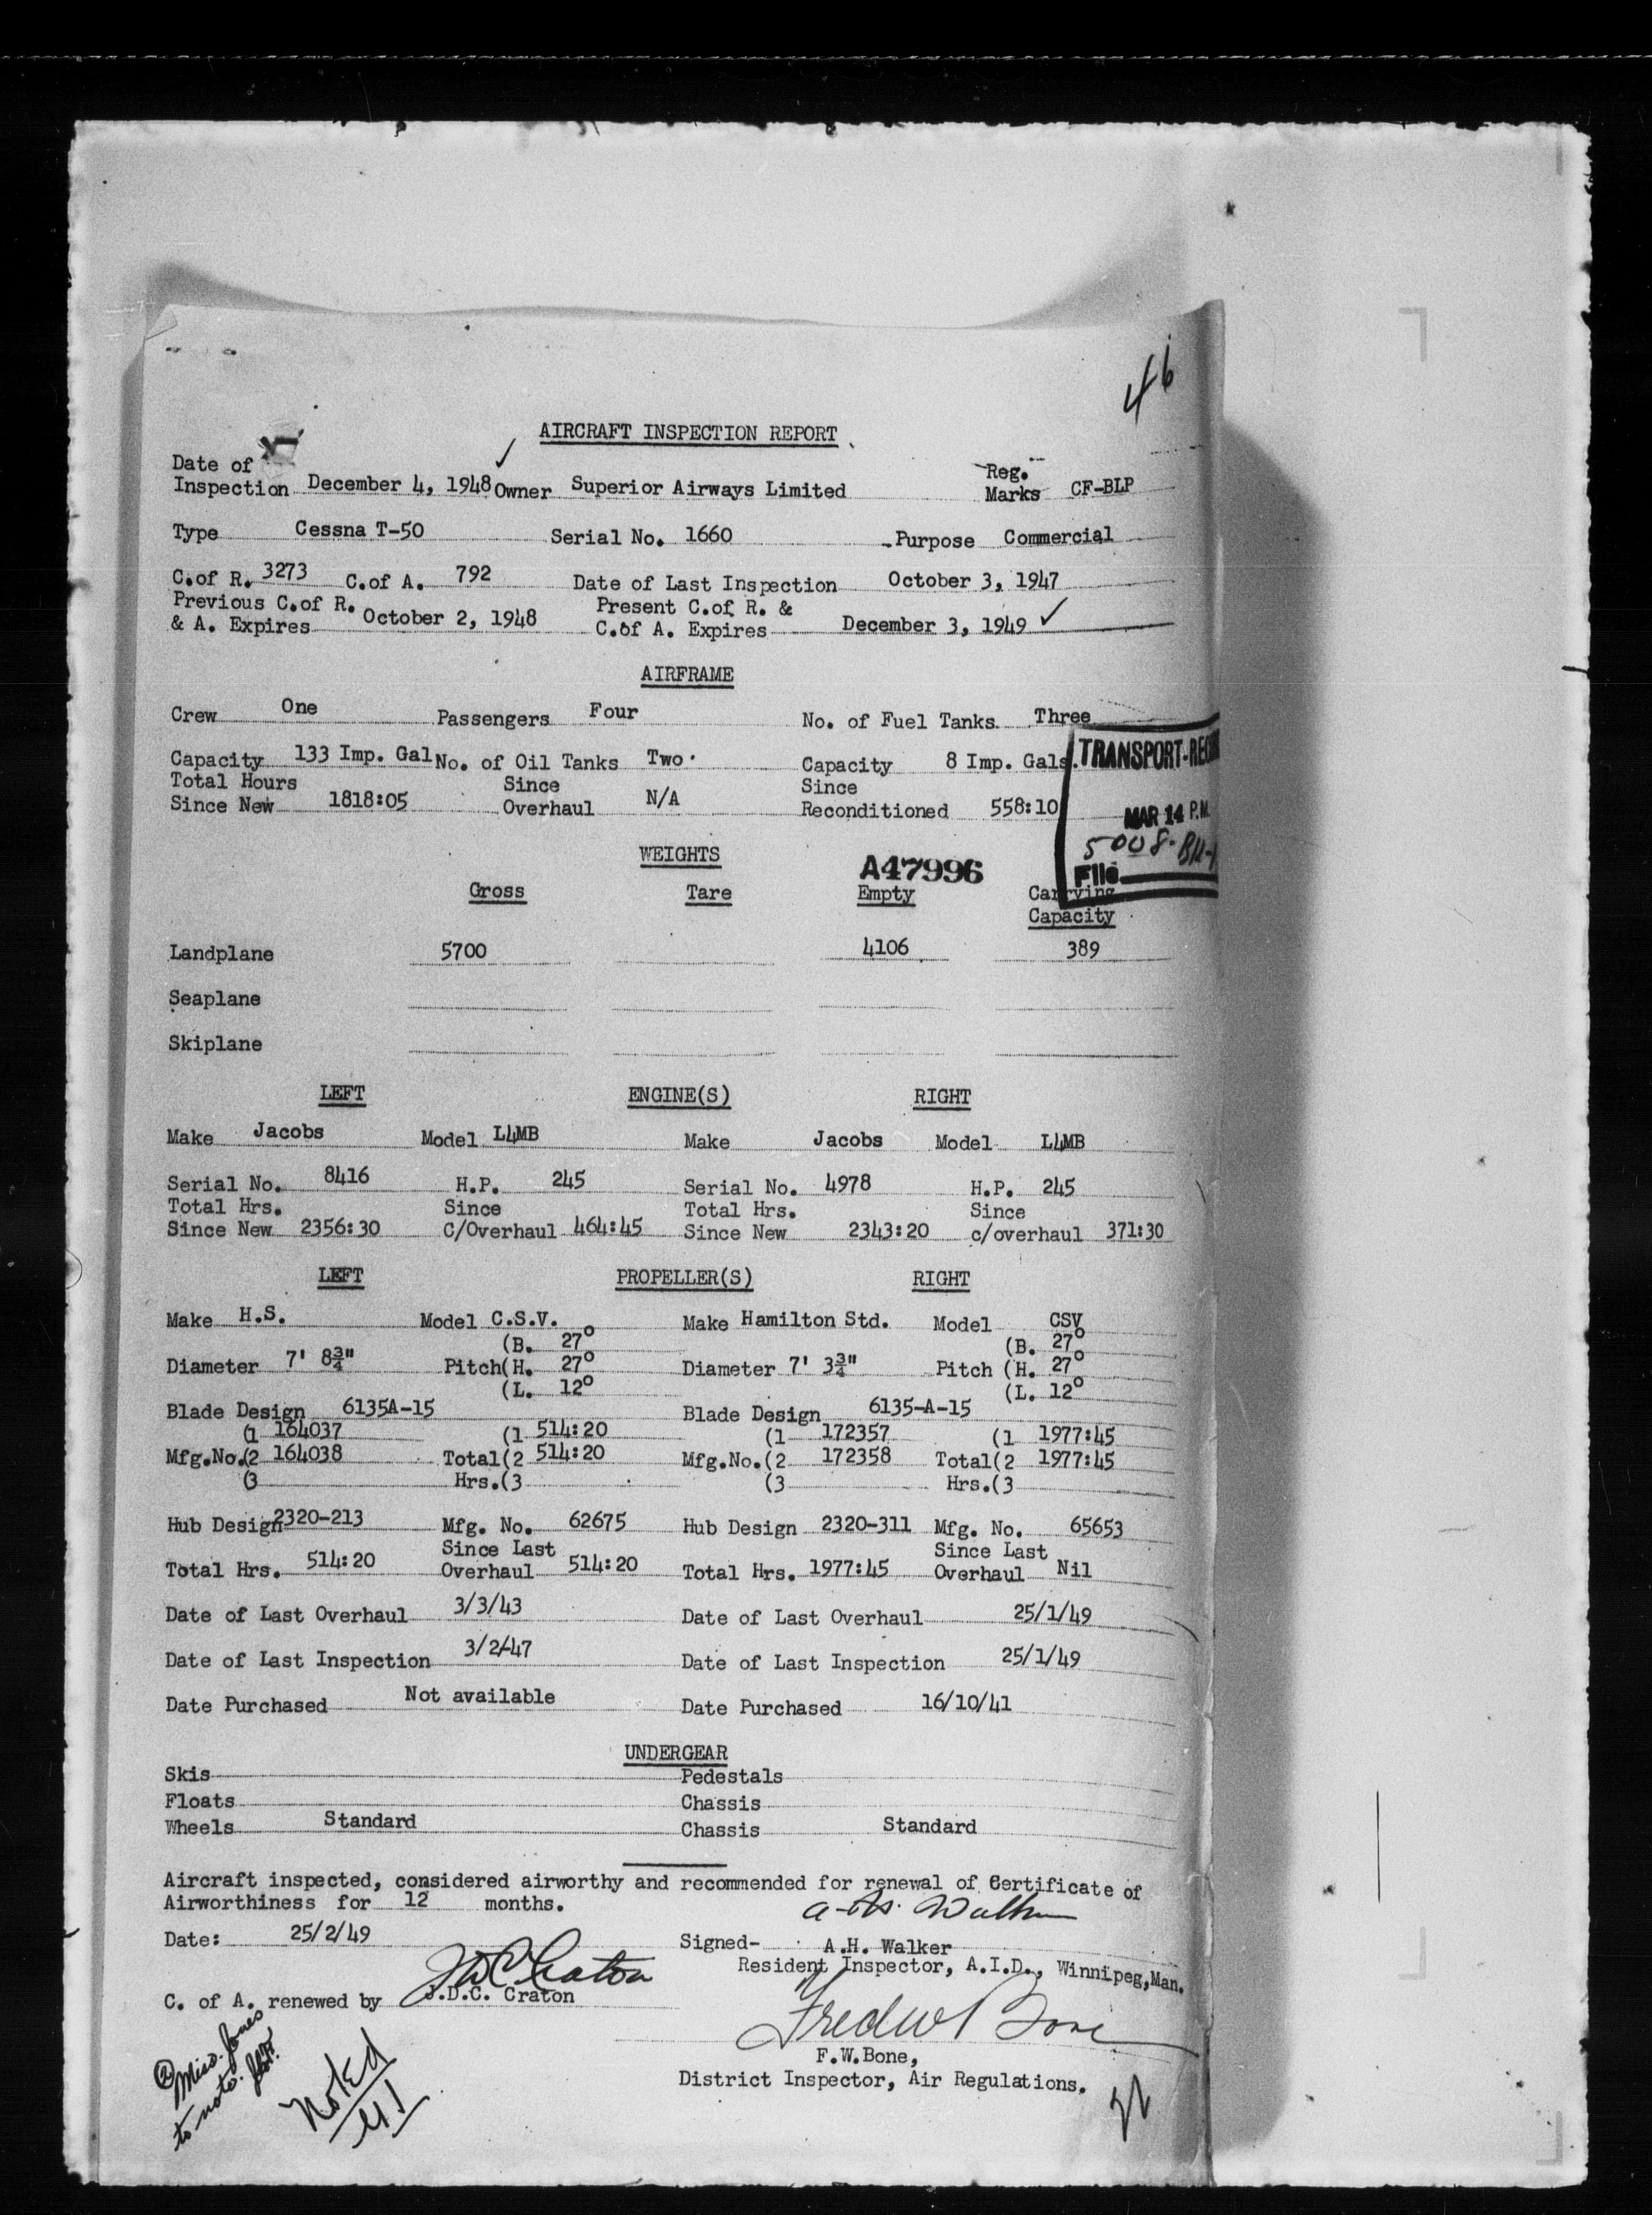 46
AIRCRAFT INSPECTION REPORT
Date of Inspection December 4, 1948 Owner Superior Airways Limited Reg. Marks CF-BLP
Type Cessna T-50 Serial No. 1660 Purpose Commercial
C.of R. 3273 C.of A. 792 Date of Last Inspection October 3, 1947
Previous C.of R. & A. Expires October 2, 1948 Present C.of R. & C.of A. Expires December 3, 1949
AIRFRAME
Crew One Passengers Four No. of Fuel Tanks Three
Capacity 133 Imp. Gal No. of Oil Tanks Two Capacity 8 Imp. Gals.
Total Hours Since New 1818:05 Since Overhaul N/A Since Reconditioned 558:10
TRANSPORT-REC
MAR 14 P.M.
5008-
File
WEIGHTS
A47996
Gross Tare Empty Carrying Capacity
Landplane 5700 4106 389
Seaplane
Skiplane
LEFT ENGINE(S) RIGHT
Make Jacobs Model L4MB Make Jacobs Model L4MB
Serial No. 8416 H.P. 245 Serial No. 4978 H.P. 245
Total Hrs. Since Total Hrs. Since
Since New 2356:30 C/Overhaul 464:45 Since New 2343:20 c/overhaul 371:30
LEFT PROPELLER(S) RIGHT
Make H.S. Model C.S.V. Make Hamilton Std. Model CSV
(B. 27° (B. 27°
Diameter 7' 8¾" Pitch(H. 27° Diameter 7' 3¾" Pitch (H. 27°
(L. 12° (L. 12°
Blade Design 6135A-15 Blade Design 6135-A-15
(1 164037 (1 514:20 (1 172357 (1 1977:45
Mfg.No.(2 164038 Total(2 514:20 Mfg.No.(2 172358 Total(2 1977:45
(3 Hrs.(3 (3 Hrs.(3
Hub Design 2320-213 Mfg. No. 62675 Hub Design 2320-311 Mfg. No. 65653
Since Last Since Last
Total Hrs. 514:20 Overhaul 514:20 Total Hrs. 1977:45 Overhaul Nil
Date of Last Overhaul 3/3/43 Date of Last Overhaul 25/1/49
Date of Last Inspection 3/2/47 Date of Last Inspection 25/1/49
Date Purchased Not available Date Purchased 16/10/41
UNDERGEAR
Skis Pedestals
Floats Chassis
Wheels Standard Chassis Standard
Aircraft inspected, considered airworthy and recommended for renewal of Certificate of
Airworthiness for 12 months.
A.H. Walker
Date: 25/2/49 Signed- A.H. Walker
Resident Inspector, A.I.D., Winnipeg, Man.
J.D.C. Craton
C. of A. renewed by J.D.C. Craton
Fred W Bone
F.W.Bone,
District Inspector, Air Regulations.
Miss. Jones
to note.
Noted